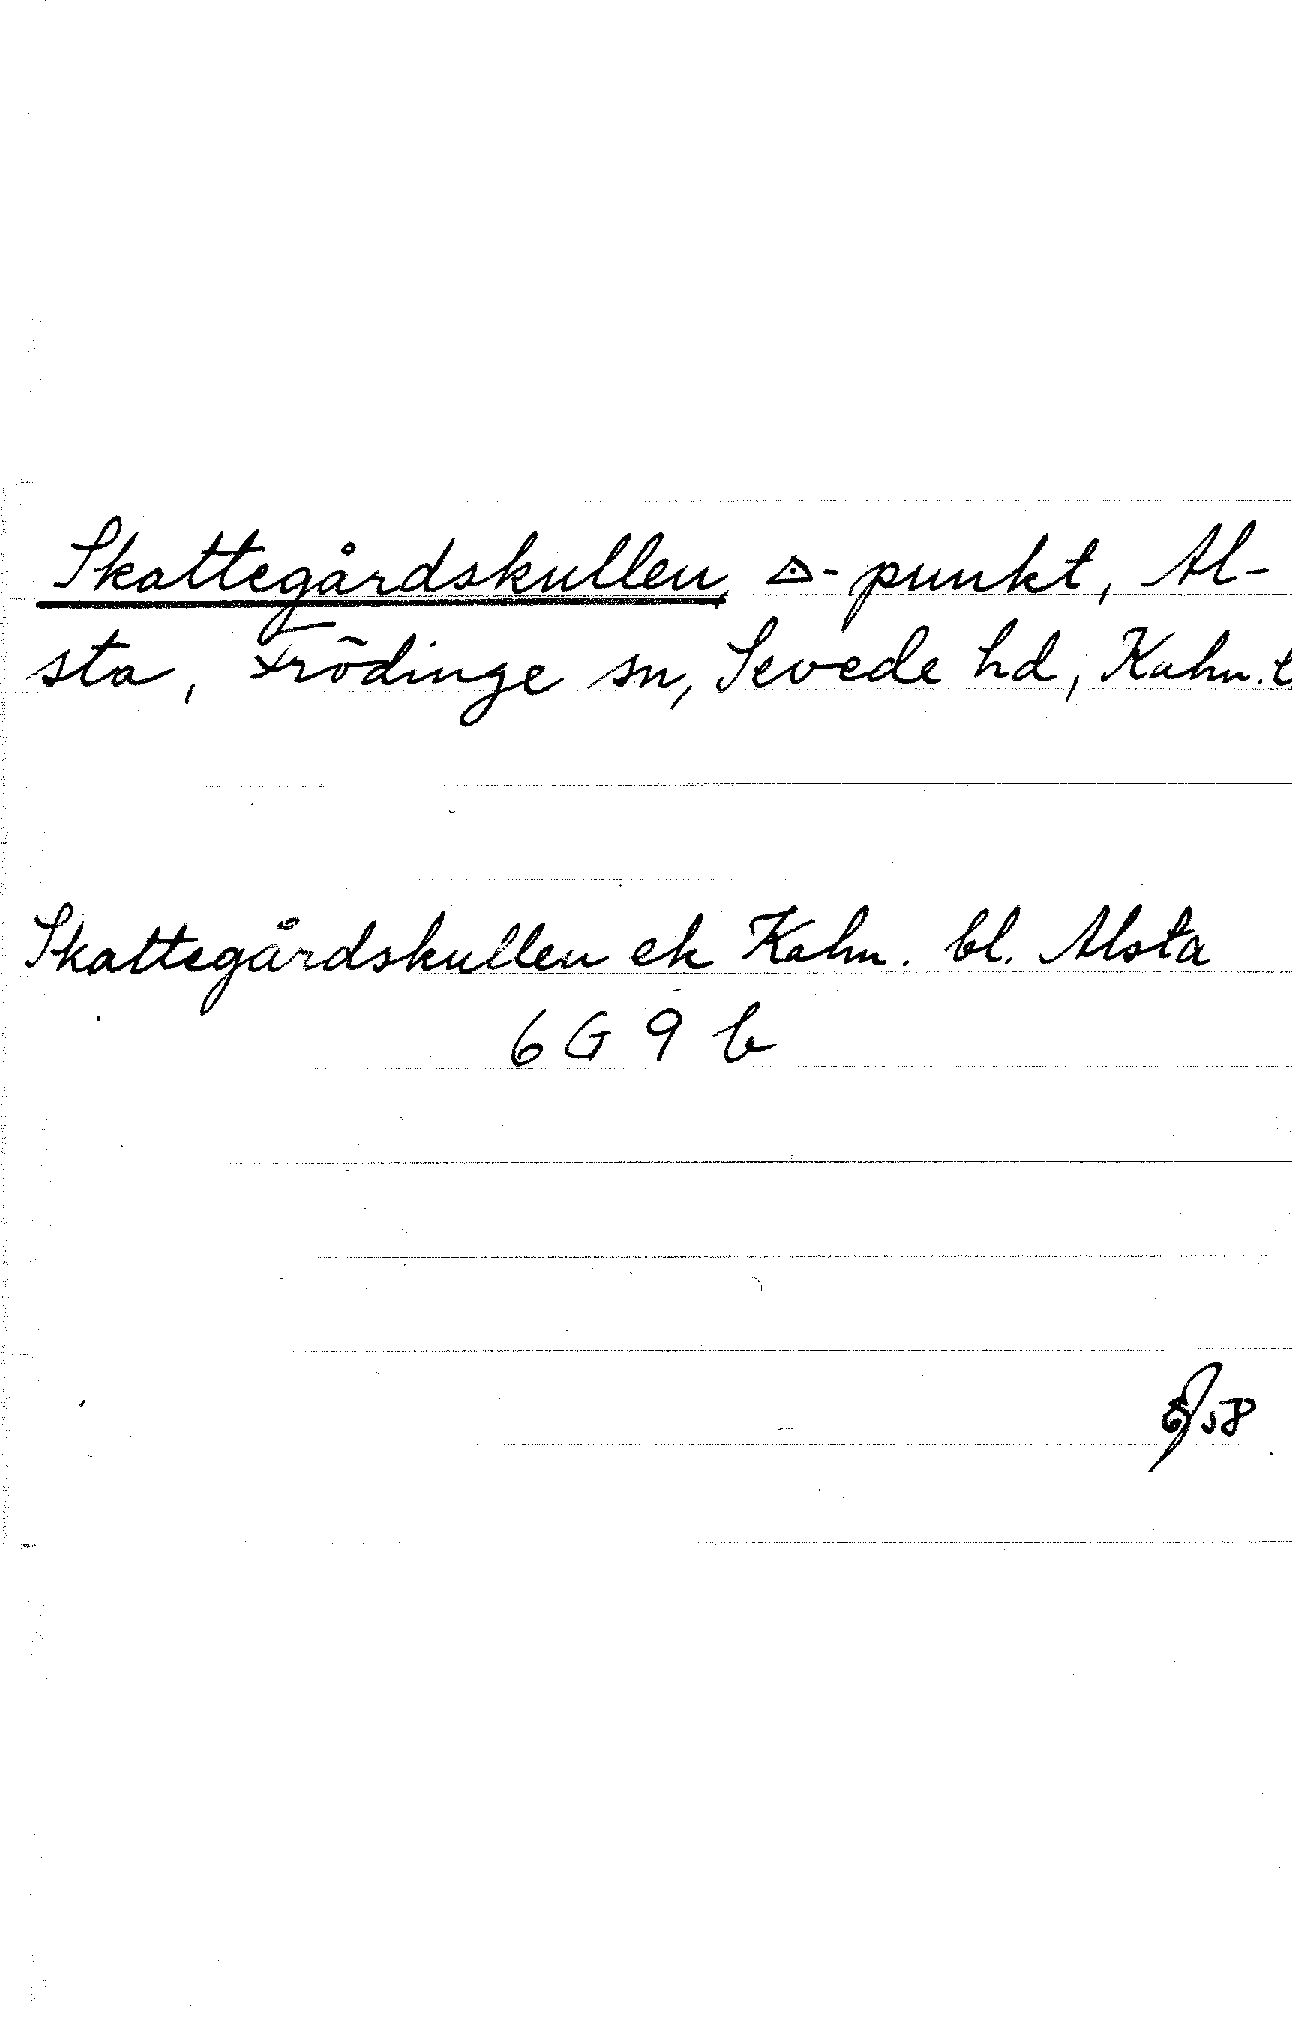 Skattegårdskullen, △-punkt, Al-
sta, Frödinge sn, Sevede hd, Kalm. l
Skattegårdskullen ek Kalm. bl. Alsta
6 G 9 b
58